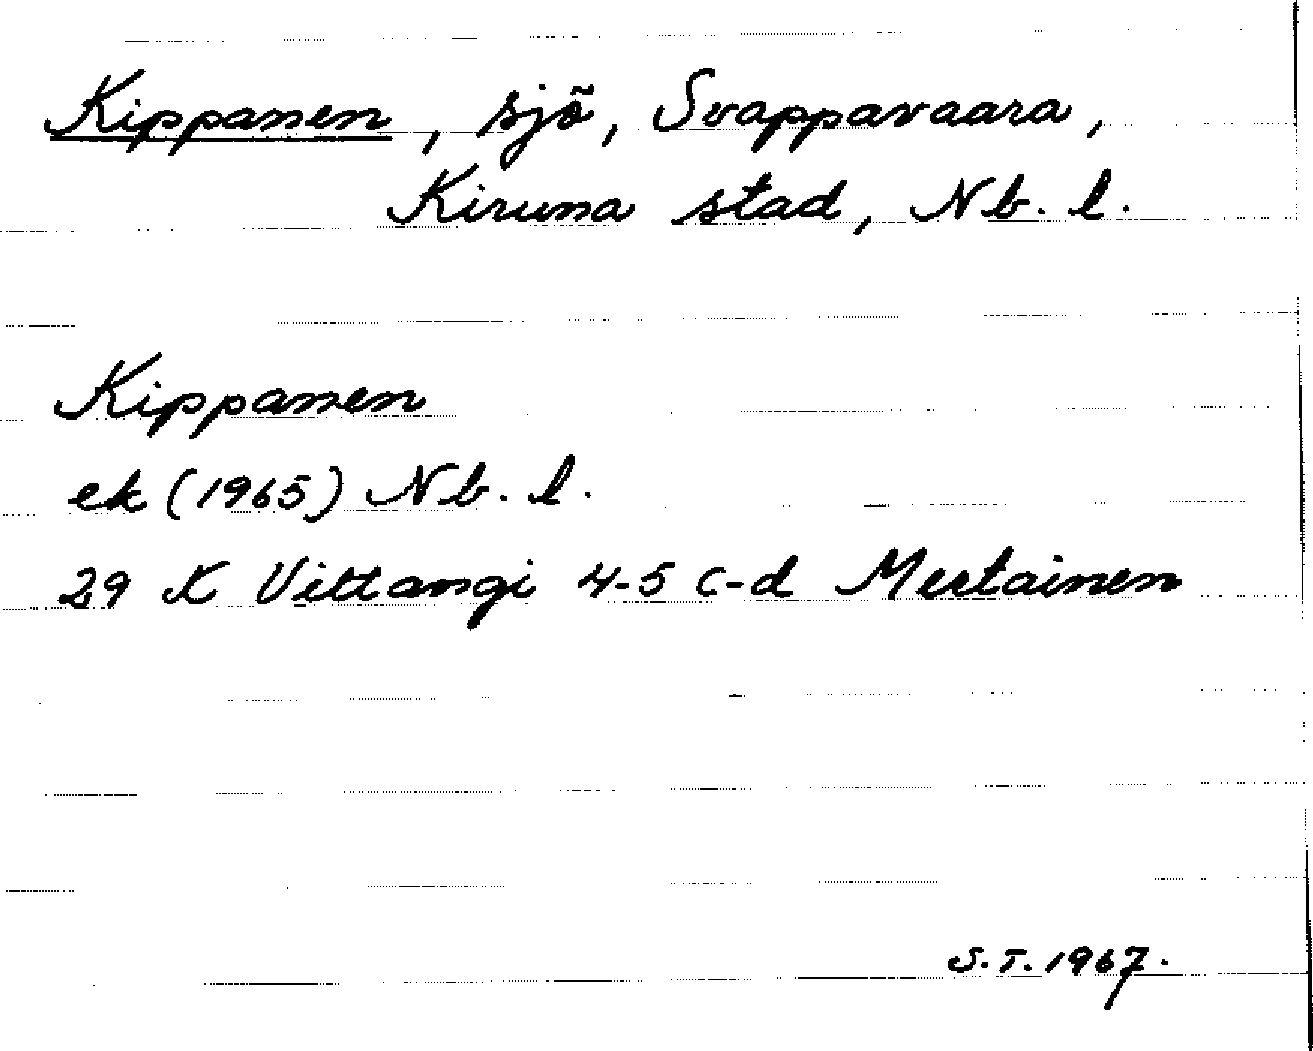 Kippanen, sjö, Svappavaara,
Kiruna stad, Nb. l.
Kippanen
ek (1965) Nb. l.
29 K Vittangi 4-5 c-d Mertainen
S.T. 1967.